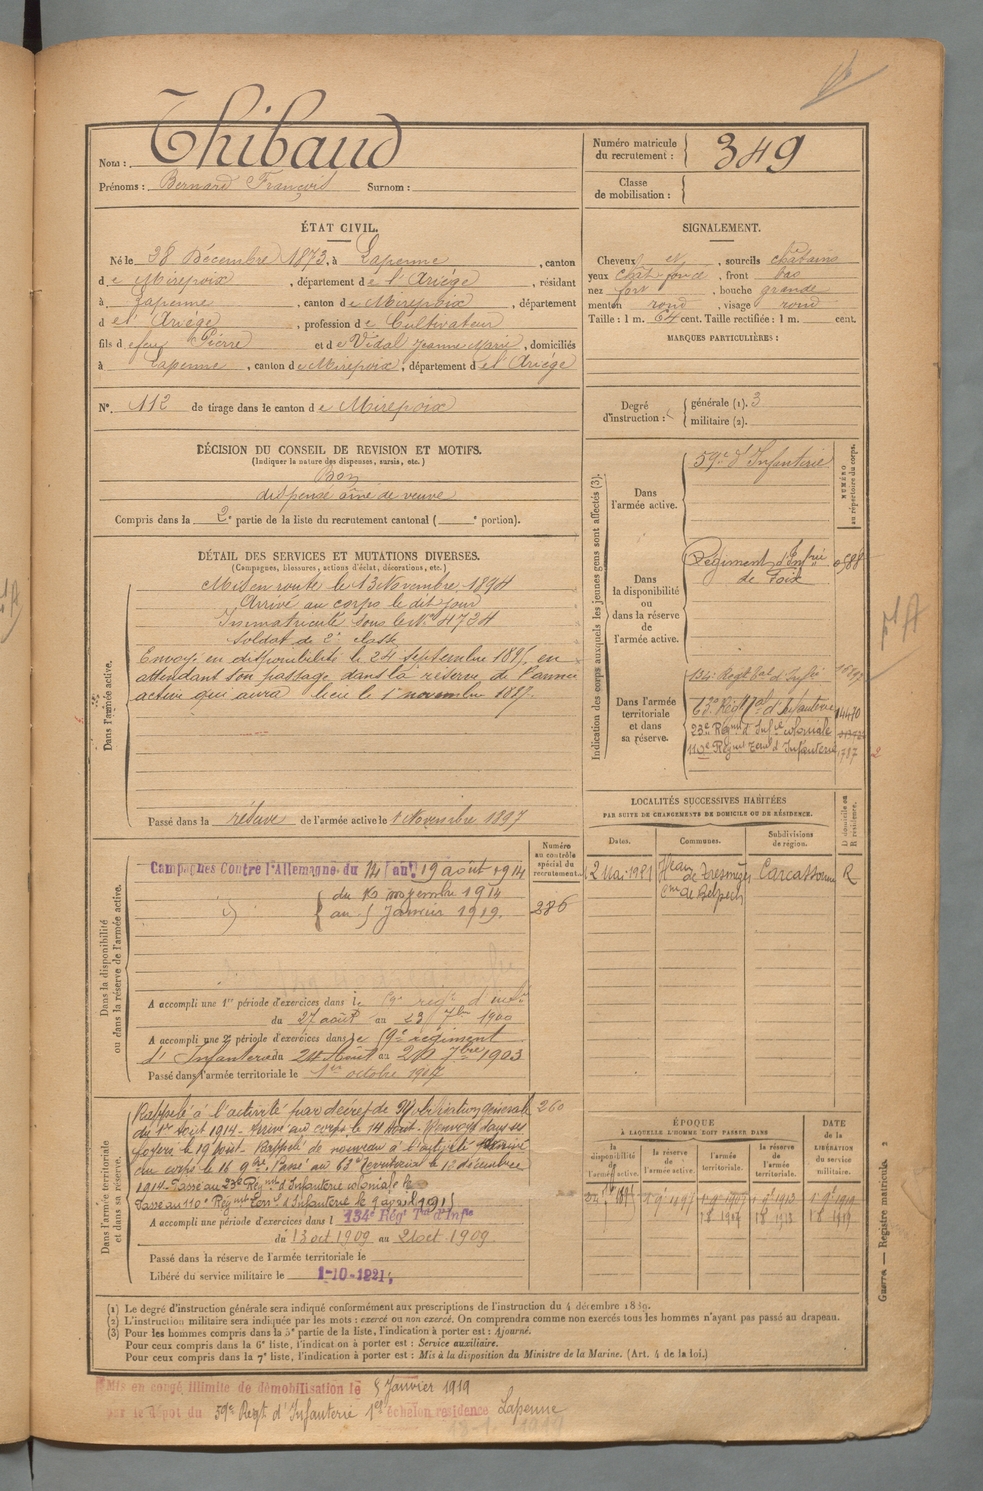 Nom : Thibaud
Prénoms : Bernard François Surnom :
Numéro matricule du recrutement : 349
Classe de mobilisation :
ÉTAT CIVIL.
Né le 28 Décembre 1873, à Lapenne, canton
de Mirepoix, département de l'Ariége, résidant
à Lapenne, canton de Mirepoix, département
d el' Ariége, profession de Cultivateur
fils de feu Pierre et de Vidal Jeanne Marie, domiciliés
à Lapenne, canton de Mirepoix, département d el' Ariége
SIGNALEMENT.
Cheveux et, sourcils châtains
yeux chat. foncé, front bas
nez fort, bouche grande
menton rond, visage rond
Taille : 1 m. 64 cent. Taille rectifiée : 1 m. cent.
MARQUES PARTICULIÈRES :
N°. 112 de tirage dans le canton de Mirepoix
Degré d'instruction : générale (1). 3
militaire (2).
DÉCISION DU CONSEIL DE REVISION ET MOTIFS.
(Indiquer la nature des dispenses, sursis, etc.)
Bon
dispensé aîné de veuve
Compris dans la 2e partie de la liste du recrutement cantonal ( e portion).
DÉTAIL DES SERVICES ET MUTATIONS DIVERSES.
(Campagnes, blessures, actions d'éclat, décorations, etc.)
Dans l'armée active.
Mis en route le 13 Novembre 1894
Arrivé au corps le dit jour
Immatriculé sous le n° 4734
Soldat de 2e classe
Envoyé en disponibilité le 24 septembre 1895, en
attendant son passage dans la réserve de l'armée
active qui aura lieu le 1er novembre 1897.
Passé dans la réserve de l'armée active le 1 Novembre 1897
Indication des corps auxquels les jeunes gens sont affectés (3).
NUMÉRO au répertoire du corps.
Dans l'armée active.
59e d'Infanterie
Dans la disponibilité ou dans la réserve de l'armée active.
Régiment d'Infrie de Foix
Dans l'armée territoriale et dans sa réserve.
134e Regt Tal d'Infie
63e Régt Tal d'Infanterie
23e Régmt d'Infrie coloniale
110e Régmt Terral d'Infanterie 1787
LOCALITÉS SUCCESSIVES HABITÉES
PAR SUITE DE CHANGEMENTS DE DOMICILE OU DE RÉSIDENCE.
Dates. Communes. Subdivisions de région. D domicile ou R résidence.
2 Mai 1921
Cne de Belpech Carcassonne R
Dans la disponibilité ou dans la réserve de l'armée active.
Numéro au contrôle spécial du recrutement.
Campagnes Contre l'Allemagne du 14 au 19 août 1914
du 16 novembre 1914
au 5 Janvier 1919.
286
A accompli une 1re période d'exercices dans le 59e régt d'infie
du 27 août au 23 7bre 1900
A accompli une 2e période d'exercices dans le 59e régiment
d'Infanterie du 24 Août au 20 7bre 1903
Passé dans l'armée territoriale le 1er octobre 1907
Dans l'armée territoriale et dans sa réserve.
Rappelé à l'activité par décret de Mobilisation générale 260
du 1er Août 1914 - Arrivé au corps le 14 Août - Renvoyé dans ses
foyers le 19 août - Rappelé de nouveau à l'activité Arrivé
au corps le 16 9bre. Passé au 63e Territorial le 12 décembre
1914. Passé au 23e Régmt d'Infanterie coloniale
Passé au 110e Régmt Terral d'Infanterie le 9 avril 1915
A accompli une période d'exercices dans l 134e Régt Tal d'Infie
du 13 oct 1909 au 21 oct 1909
Passé dans la réserve de l'armée territoriale le
Libéré du service militaire le 1-10-1921.
ÉPOQUE
À LAQUELLE L'HOMME DOIT PASSER DANS
la disponibilité de l'armée active.
la réserve de l'armée active.
l'armée territoriale.
la réserve de l'armée territoriale.
DATE de la LIBÉRATION du service militaire.
Guerre — Registre matricule. 3
(1) Le degré d'instruction générale sera indiqué conformément aux prescriptions de l'instruction du 4 décembre 1889.
(2) L'instruction militaire sera indiquée par les mots : exercé ou non exercé. On comprendra comme non exercés tous les hommes n'ayant pas passé au drapeau.
(3) Pour les hommes compris dans la 5e partie de la liste, l'indication à porter est : Ajourné.
Pour ceux compris dans la 6e liste, l'indication à porter est : Service auxiliaire.
Pour ceux compris dans la 7e liste, l'indication à porter est : Mis à la disposition du Ministre de la Marine. (Art. 4 de la loi.)
Mis en congé illimité de démobilisation le 5 Janvier 1919
par le dépôt du 59e Regt d'Infanterie 1er échelon residence Lapenne